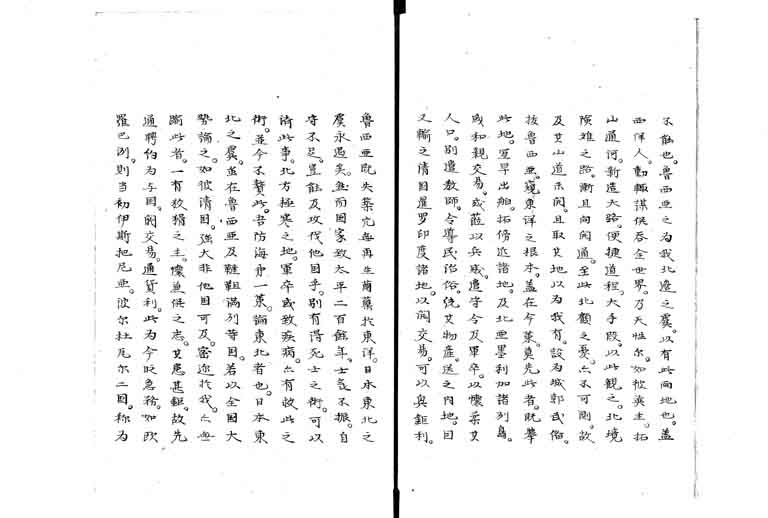 不能也。魯西亜之為我北邊之虞。以有此両地也。蓋
西洋人。動輒謀併呑全世界。乃天性尓。如彼英主。拓
山通河。新造大路。便捷道程。大手段。以此観之。北境
険难之路。漸且向開通。至此北顧之憂。亦不可測。故
及其山道未開。且取其地以為我有。設為城郭武備。
抜魯西亜。窺東洋之根本。蓋在今策。莫先此者。既挙
此地。宜早出舶。拓傍近諸地。及北亜墨利加諸列島。
或和親交易。或薙以兵威。遣守令及軍卒。以懐柔其
人口。別遣教師。令導民治俗。統其物産。送之内地。因
又輸之清国暹罗印度諸地。以開交易。可以興鉅利。
魯西亜既失策。亢毎再生萌蘖於東洋。日本東北之
虞永遏矣。然而国家致太平二百餘年。士氣不振。自
守不足。豈能及攻伐他国乎。別有得死士之術。可以
済此事。北方極寒之地。軍卒或致疾病。亦有救此之
術。並今不贅此。吾防海第一策。論東北者也。日本東
北之虞。蓋在魯西亜及韃靼満列等国。若以全国大
勢論之。如彼清国。強大非他国可及。密迩於我。亦無
踰此者。一有狡猾之主。懐並併之志。其患甚鉅。故先
通聘約為与国。開交易。通貨利。此為今時急務。如欧
羅巴列。則当初伊斯把尼亜。波尔杜瓦尔二国。称為